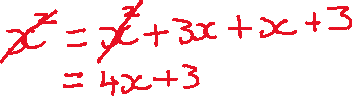 x² = x² + 3x + x + 3
= 4x + 3